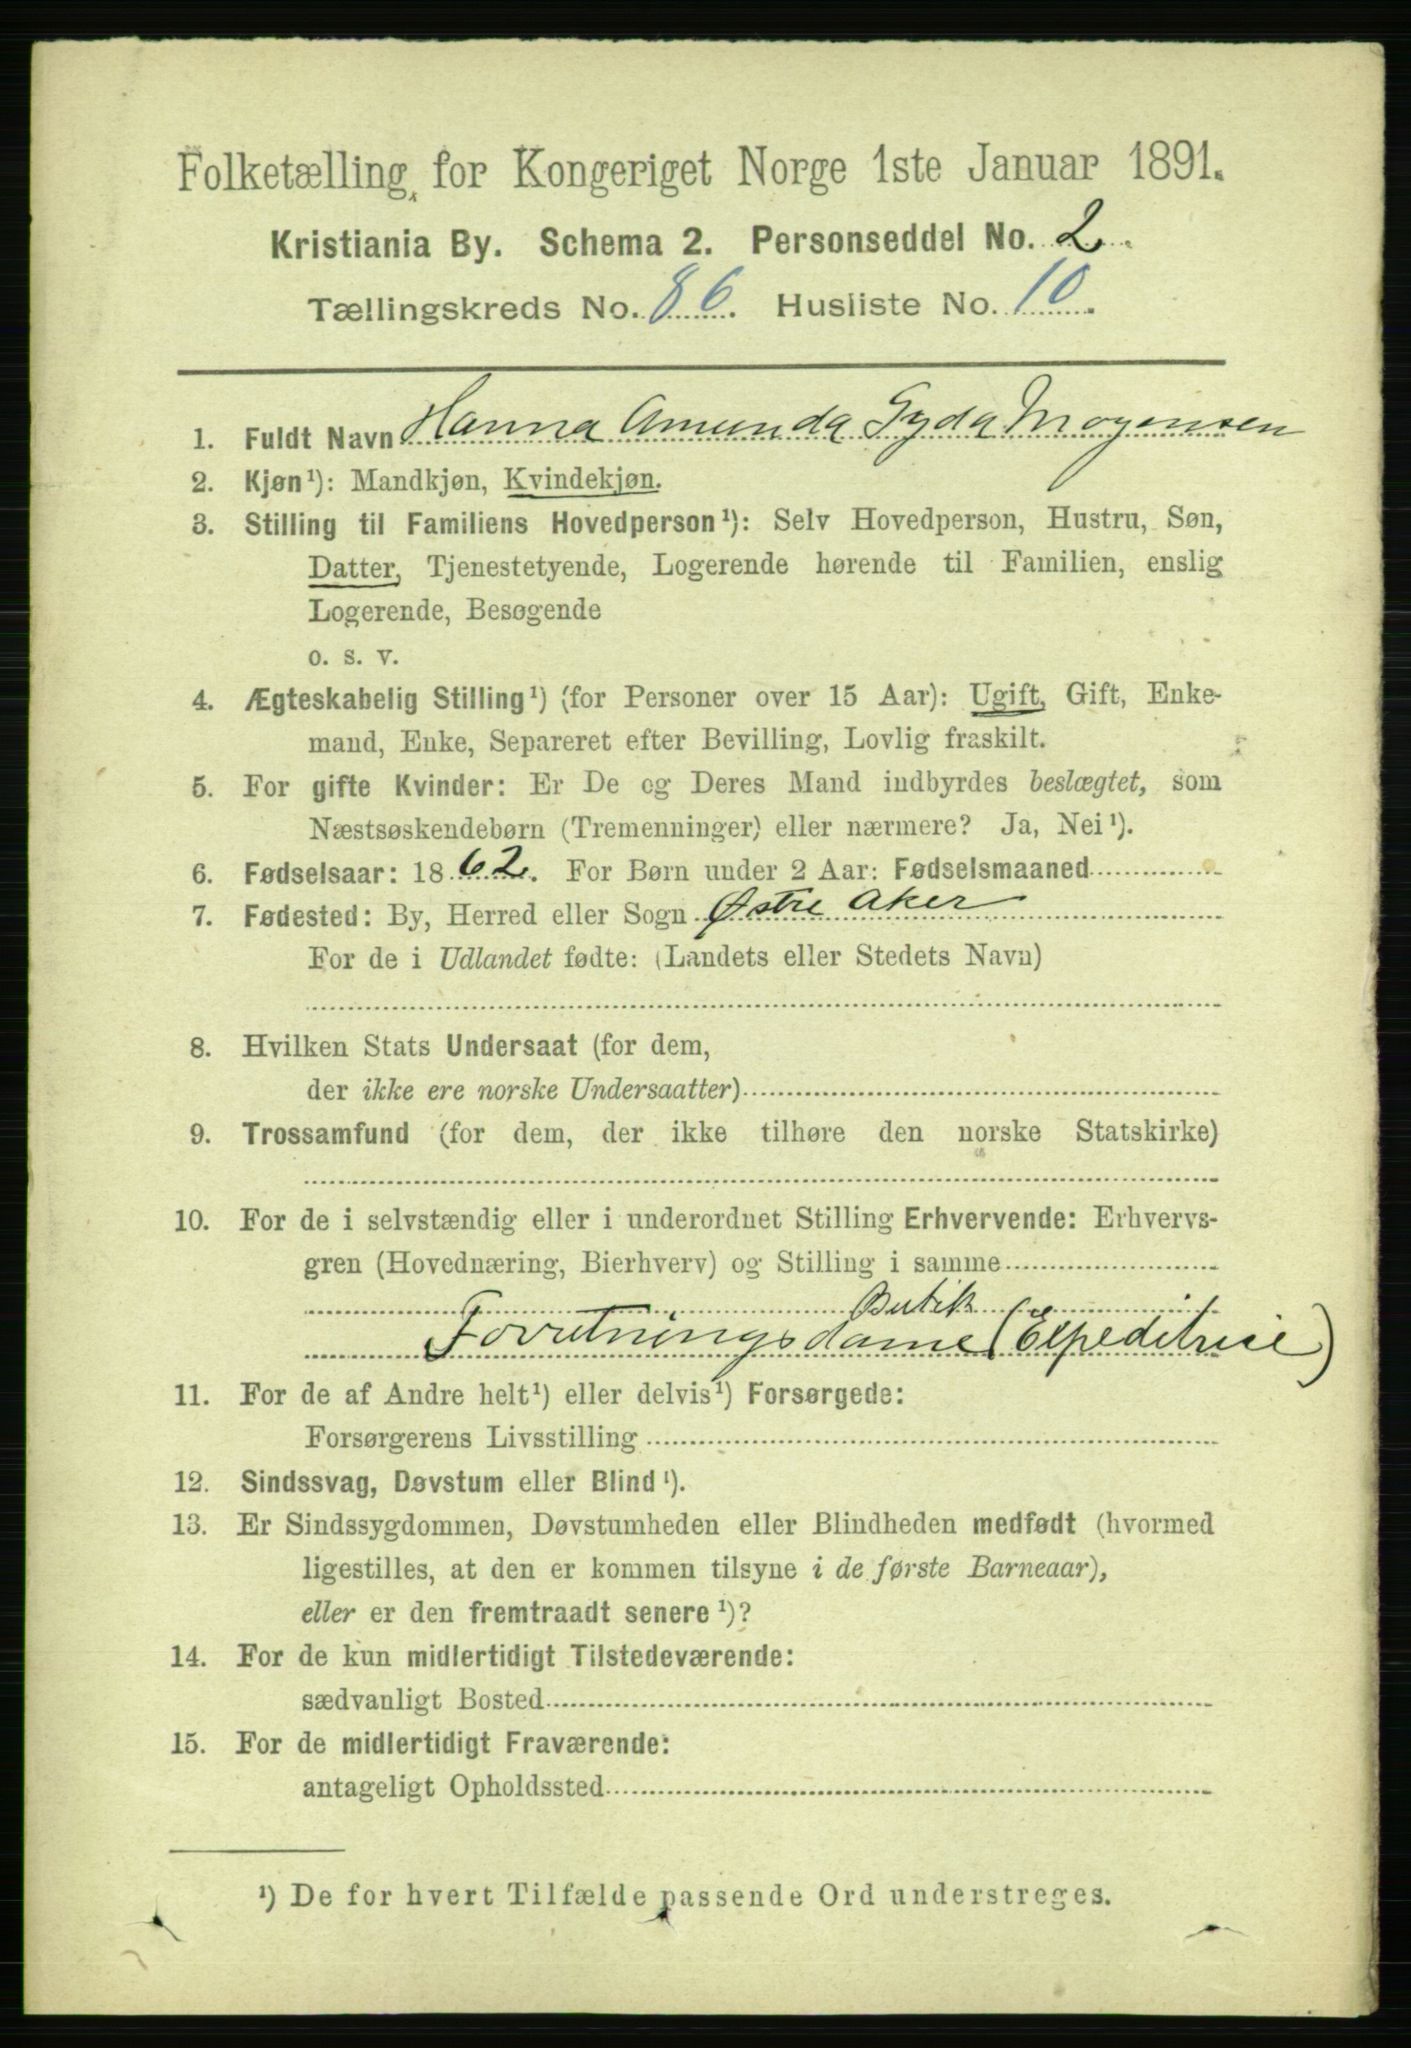 Folketælling for Kongeriget Norge 1ste Januar 1891.
Kristiania By. Schema 2. Personseddel No. 2.
Tællingskreds No. 86. Husliste No. 10.
1. Fuldt Navn Hanna Amunda Gyda Mogensen
2. Kjøn¹): Mandkjøn, Kvindekjøn.
3. Stilling til Familiens Hovedperson¹): Selv Hovedperson, Hustru, Søn,
Datter, Tjenestetyende, Logerende hørende til Familien, enslig
Logerende, Besøgende
o. s. v.
4. Ægteskabelig Stilling¹) (for Personer over 15 Aar): Ugift, Gift, Enke-
mand, Enke, Separeret efter Bevilling, Lovlig fraskilt.
5. For gifte Kvinder: Er De og Deres Mand indbyrdes beslægtet, som
Næstsøskendebørn (Tremenninger) eller nærmere? Ja, Nei¹).
6. Fødselsaar: 1862. For Børn under 2 Aar: Fødselsmaaned
7. Fødested: By, Herred eller Sogn Østre Aker
For de i Udlandet fødte: (Landets eller Stedets Navn)
8. Hvilken Stats Undersaat (for dem,
der ikke ere norske Undersaatter)
9. Trossamfund (for dem, der ikke tilhøre den norske Statskirke)
10. For de i selvstændig eller i underordnet Stilling Erhvervende: Erhvervs-
gren (Hovednæring, Bierhverv) og Stilling i samme
Butik
Forretningsdame (Expeditrise)
11. For de af Andre helt¹) eller delvis¹) Forsørgede:
Forsørgerens Livsstilling
12. Sindssvag, Døvstum eller Blind¹).
13. Er Sindssygdommen, Døvstumheden eller Blindheden medfødt (hvormed
ligestilles, at den er kommen tilsyne i de første Barneaar),
eller er den fremtraadt senere¹)?
14. For de kun midlertidigt Tilstedeværende:
sædvanligt Bosted
15. For de midlertidigt Fraværende:
antageligt Opholdssted
¹) De for hvert Tilfælde passende Ord understreges.